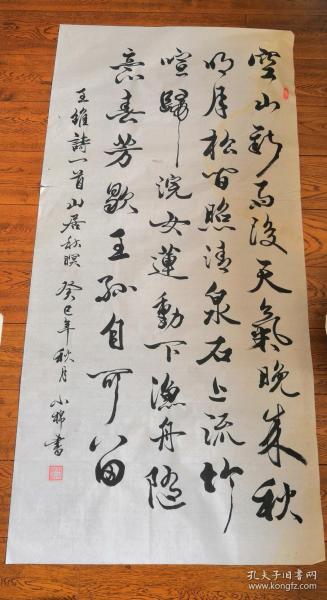 空山新雨後天氣晚來秋
明月松間照清泉石上流竹
喧歸浣女蓮動下漁舟隨
意春芳歇王孫自可留
王維詩一首山居秋暝 癸巳年秋月 小楊書
孔夫子旧书网